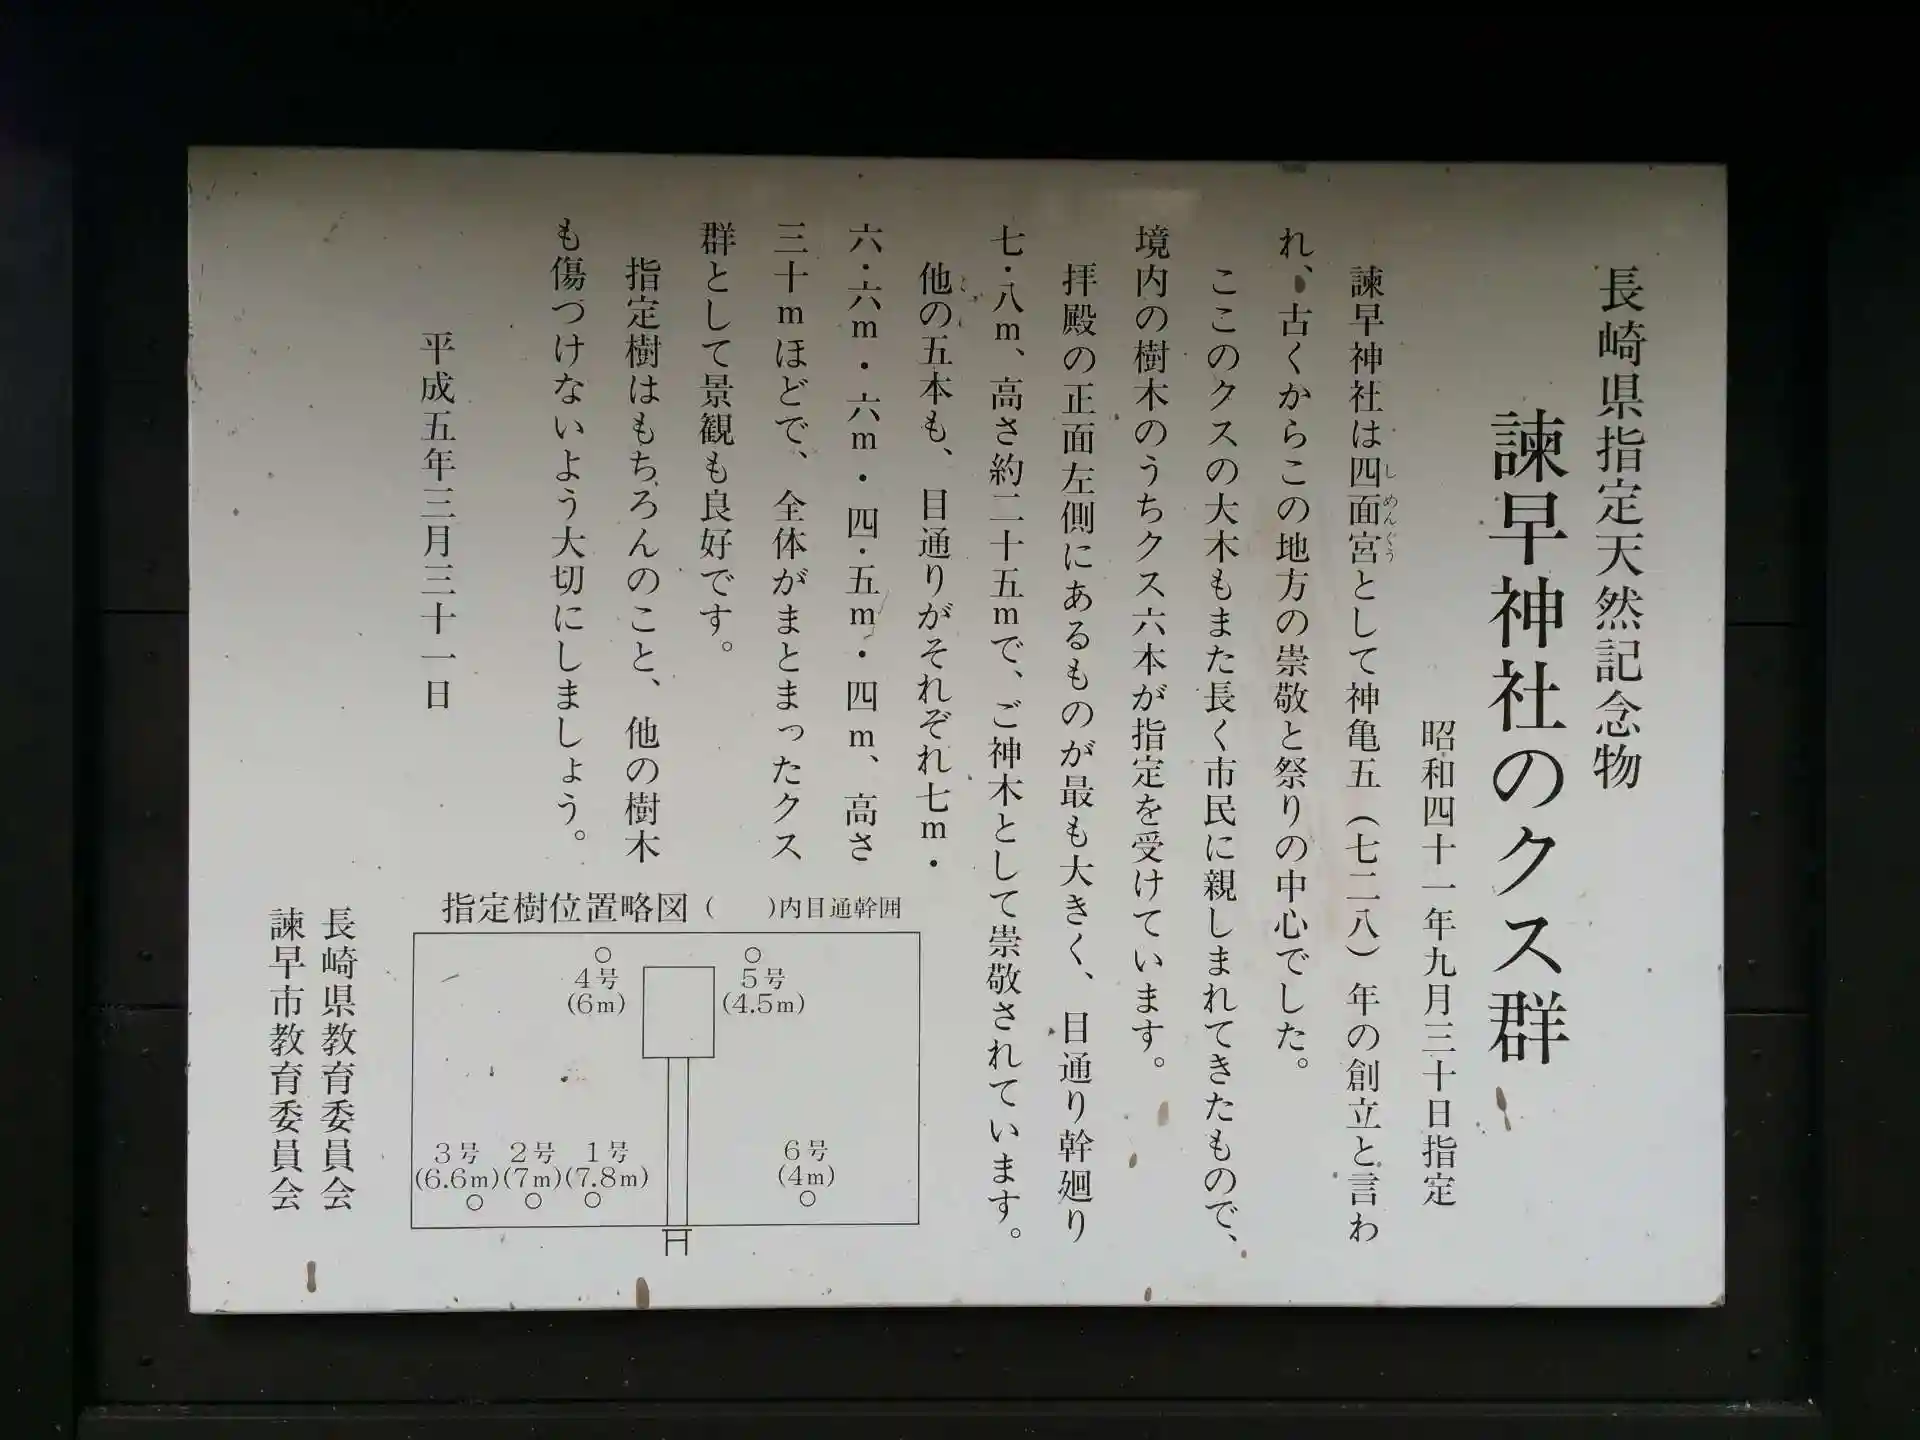 長崎県指定天然記念物
諫早神社のクス群
昭和四十一年九月三十日指定
諫早神社は四面宮として神亀五（七二八）年の創立と言わ
しめんぐう
れ、古くからこの地方の崇敬と祭りの中心でした。
ここのクスの大木もまた長く市民に親しまれてきたもので、
境内の樹木のうちクス六本が指定を受けています。
拝殿の正面左側にあるものが最も大きく、目通り幹廻り
七・八m、高さ約二十五mで、ご神木として崇敬されています。
他の五本も、目通りがそれぞれ七m・
六・六m・六m・四・五m・四m、高さ
三十mほどで、全体がまとまったクス
群として景観も良好です。
指定樹はもちろんのこと、他の樹木
も傷つけないよう大切にしましょう。
平成五年三月三十一日
長崎県教育委員会
諫早市教育委員会
指定樹位置略図（　）内目通幹囲
4号
(6m)
5号
(4.5m)
3号
(6.6m)
2号
(7m)
1号
(7.8m)
6号
(4m)